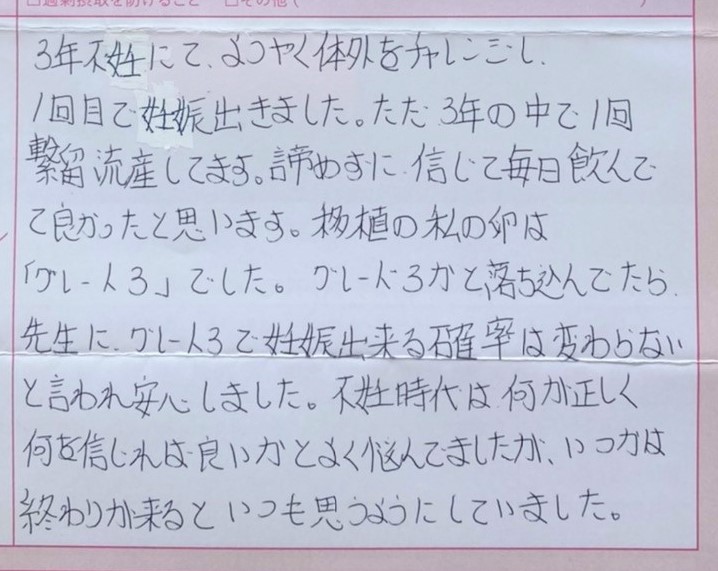 □過剰摂取を防げること □その他( )
3年不妊にて、ようやく体外をチャレンジし、
1回目で妊娠出きました。ただ 3年の中で1回
繋留流産してます。諦めずに 信じて毎日飲んで
て良かったと思います。移植の私の卵は
「グレード3」でした。グレード3かと落ち込んでたら、
先生に、グレード3で妊娠出来る確率は変わらない
と言われ安心しました。不妊時代は何が正しく
何を信じれば良いかとよく悩んでましたが、いつかは
終わりが来るといつも思うようにしていました。